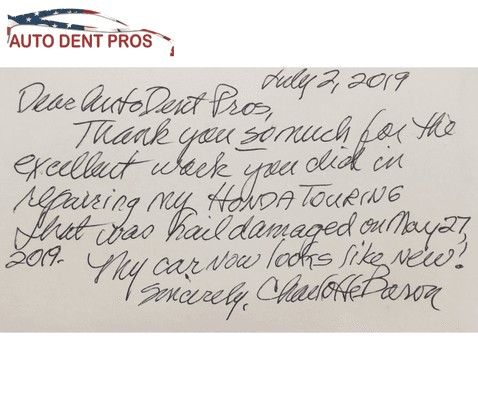 AUTO DENT PROS
July 2, 2019
Dear Auto Dent Pros,
Thank you so much for the
excellent work you did in
repairing my HONDA TOURING
that was hail damaged on May 27,
2019. My car now looks like new!
Sincerely, Charlotte